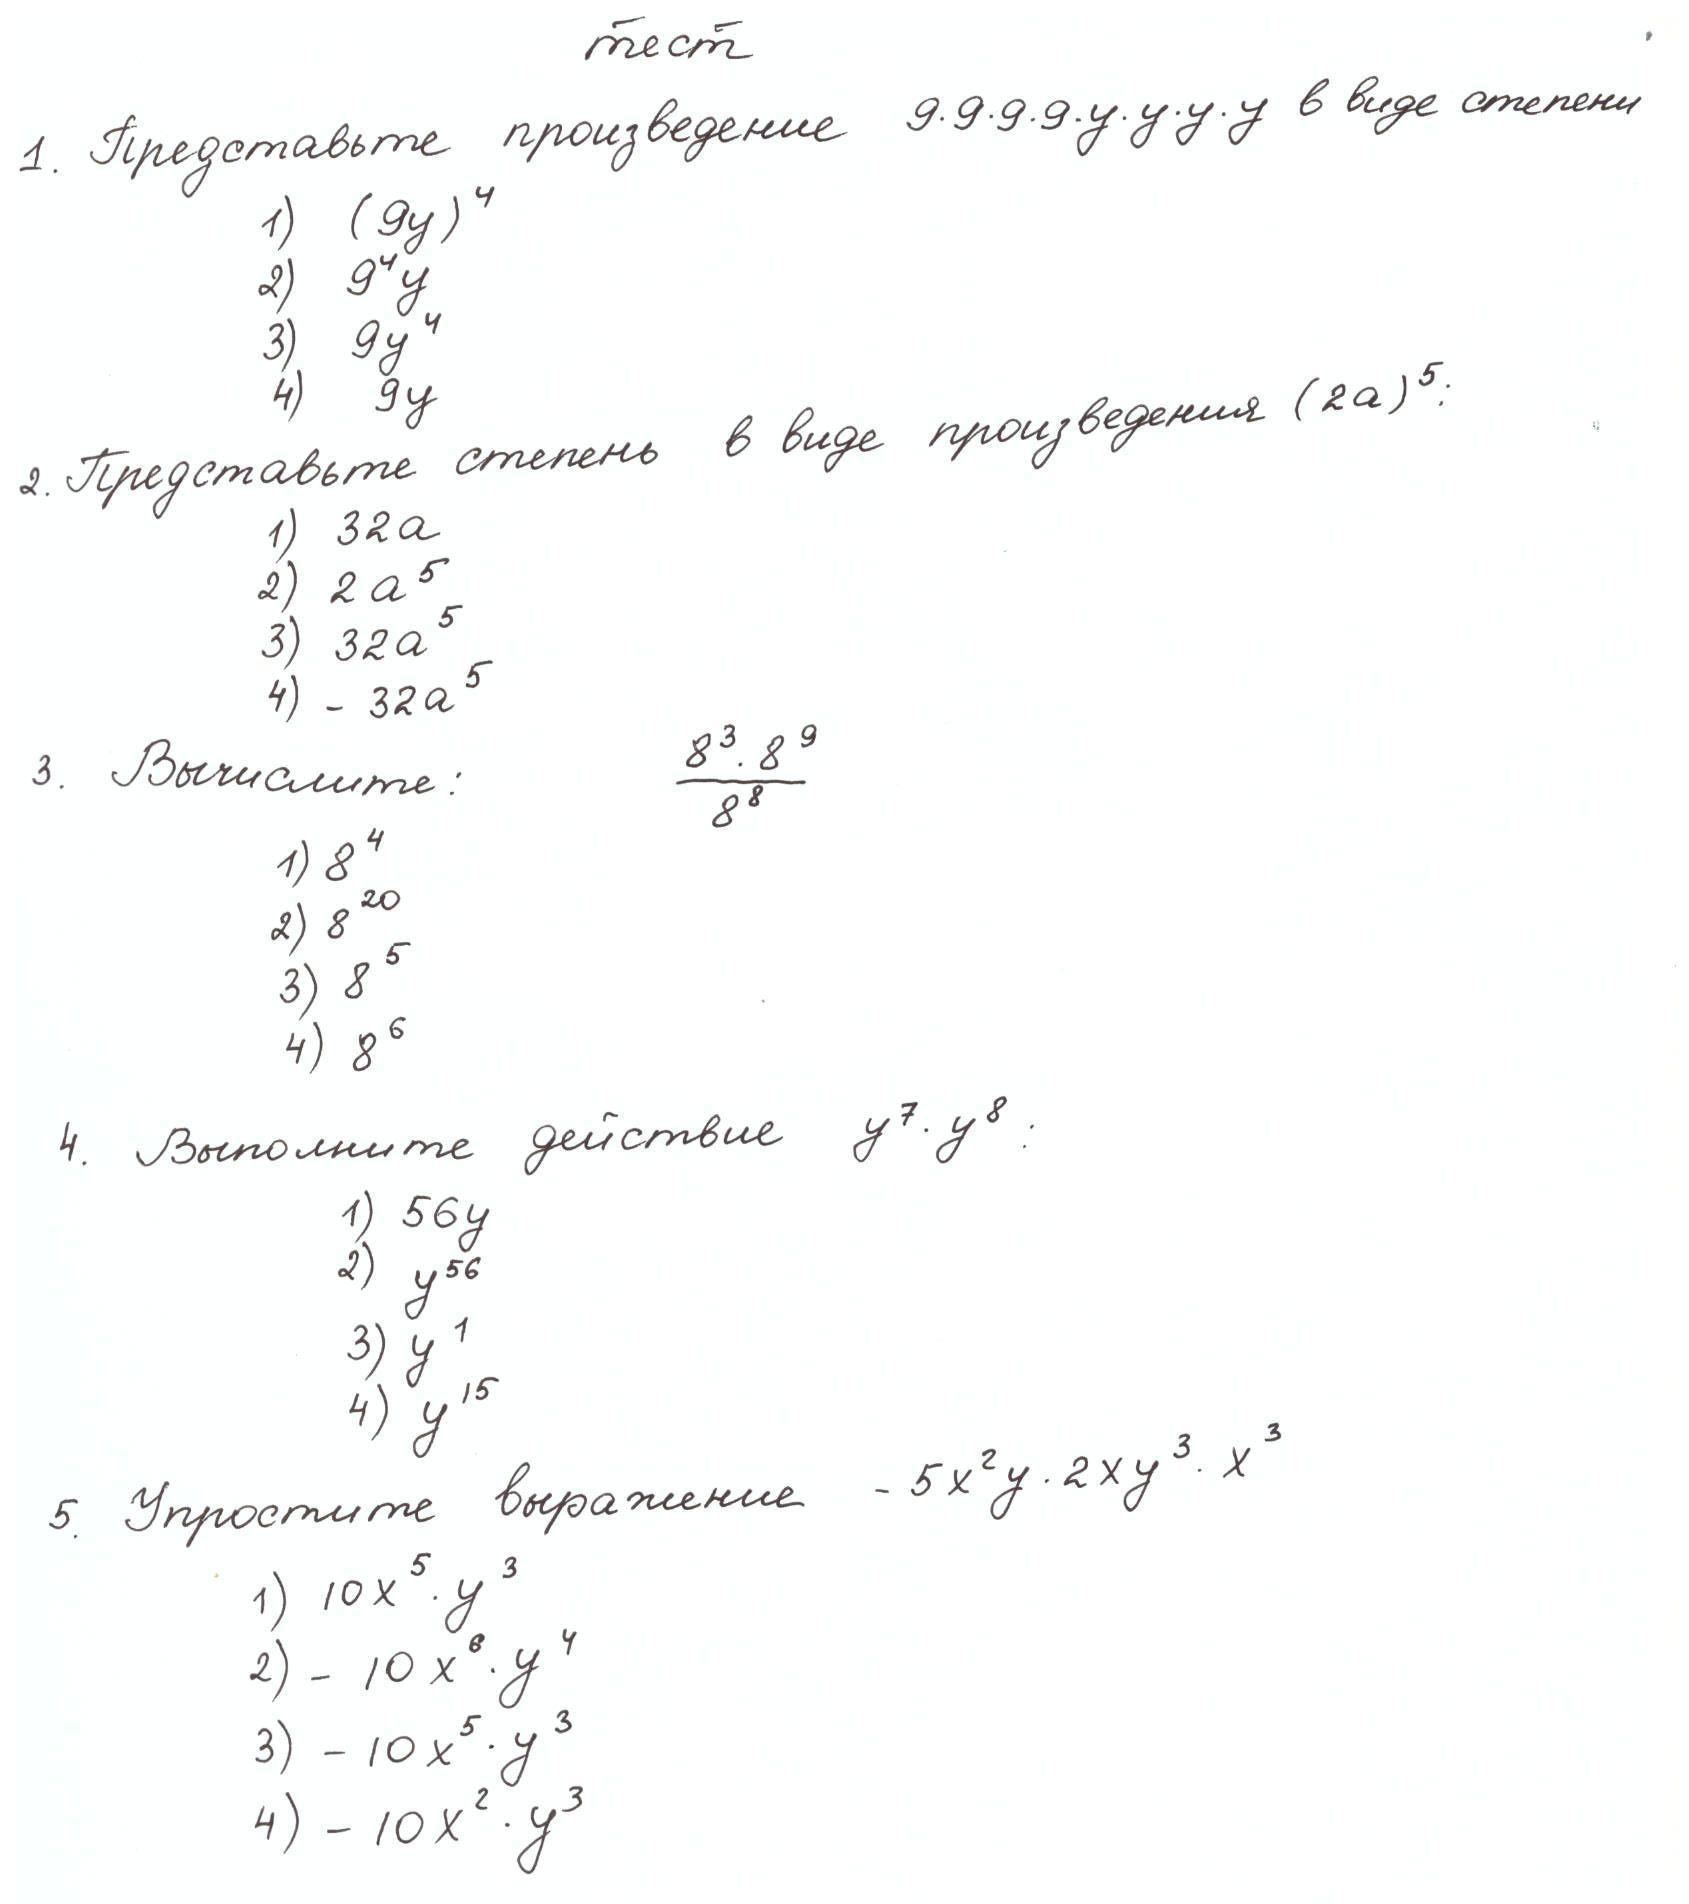 тест
1. Представьте произведение 9·9·9·9·y·y·y·y в виде степени
1) (9y)⁴
2) 9⁴y
3) 9y⁴
4) 9y
2. Представьте степень в виде произведения (2a)⁵:
1) 32a
2) 2a⁵
3) 32a⁵
4) - 32a⁵
3. Вычислите: 8³·8⁹/8⁸
1) 8⁴
2) 8²⁰
3) 8⁵
4) 8⁶
4. Выполните действие y⁷·y⁸:
1) 56y
2) y⁵⁶
3) y¹
4) y¹⁵
5. Упростите выражение -5x²y·2xy³·x³
1) 10x⁵·y³
2) -10x⁶·y⁴
3) -10x⁵·y³
4) -10x²·y³